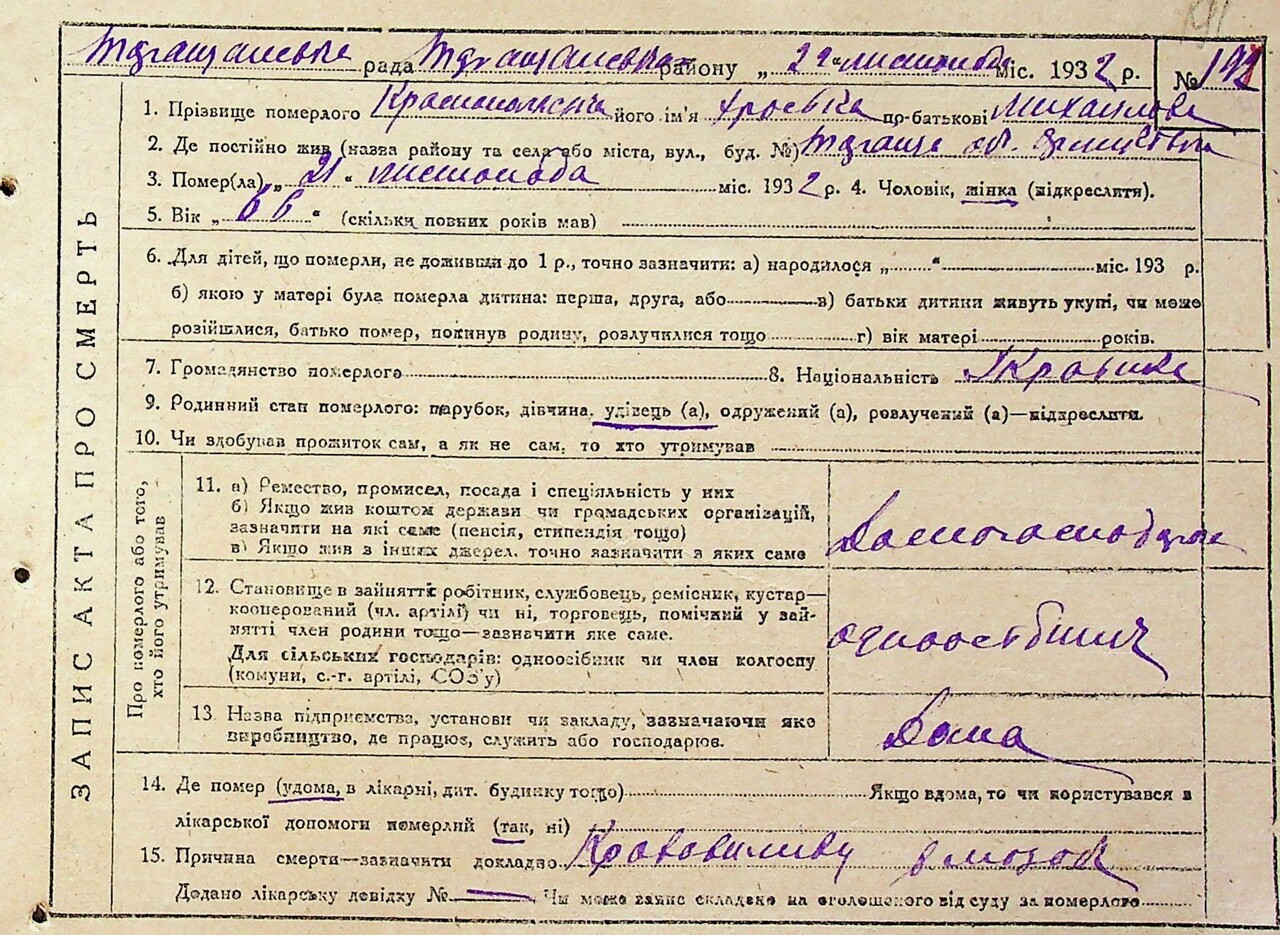 рада району „22“ листопада міс. 1932 р. № 192
1. Прізвище померлого його ім'я пр-батькові Михайлова
2. Де постійно жив (назва району та села або міста, вул., буд. №)
3. Помер(ла) „21“ листопада міс. 1932 р. 4. Чоловік, жінка (підкреслити).
5. Вік „66“ (скільки повних років мав)
6. Для дітей, що померли, не доживши до 1 р., точно зазначити: а) народилося „ “ міс. 193 р.
б) якою у матері була померла дитина: перша, друга, або в) батьки дитини живуть укупі, чи може
розійшлися, батько помер, покинув родину, розлучилися тощо г) вік матері років.
7. Громадянство померлого 8. Національність
9. Родинний стан померлого: парубок, дівчина, удівець (а), одружений (а), розлучений (а)—підкреслити.
10. Чи здобував прожиток сам, а як не сам, то хто утримував
ЗАПИС АКТА ПРО СМЕРТЬ
Про померлого або того,
хто його утримував
11. а) Ремество, промисел, посада і спеціяльність у них
б) Якщо жив коштом держави чи громадських організацій,
зазначити на які саме (пенсія, стипендія тощо)
в) Якщо жив з інших джерел, точно зазначити з яких саме
12. Становище в зайнятті: робітник, службовець, ремісник, кустар—
кооперований (чл. артілі) чи ні, торговець, помічний у зай-
нятті член родини тощо—зазначити яке саме.
Для сільських господарів: одноосібник чи член колгоспу
(комуни, с.-г. артілі, СОЗ'у)
13. Назва підприємства, установи чи закладу, зазначаючи яке
виробництво, де працює, служить або господарює.
Дома
14. Де помер (удома, в лікарні, дит. будинку тощо) Якщо вдома, то чи користувався з
лікарської допомоги померлий (так, ні)
15. Причина смерти—зазначити докладно в мозок
Додано лікарську довідку № — Чи може запис складено на оголошеного від суду за померлого